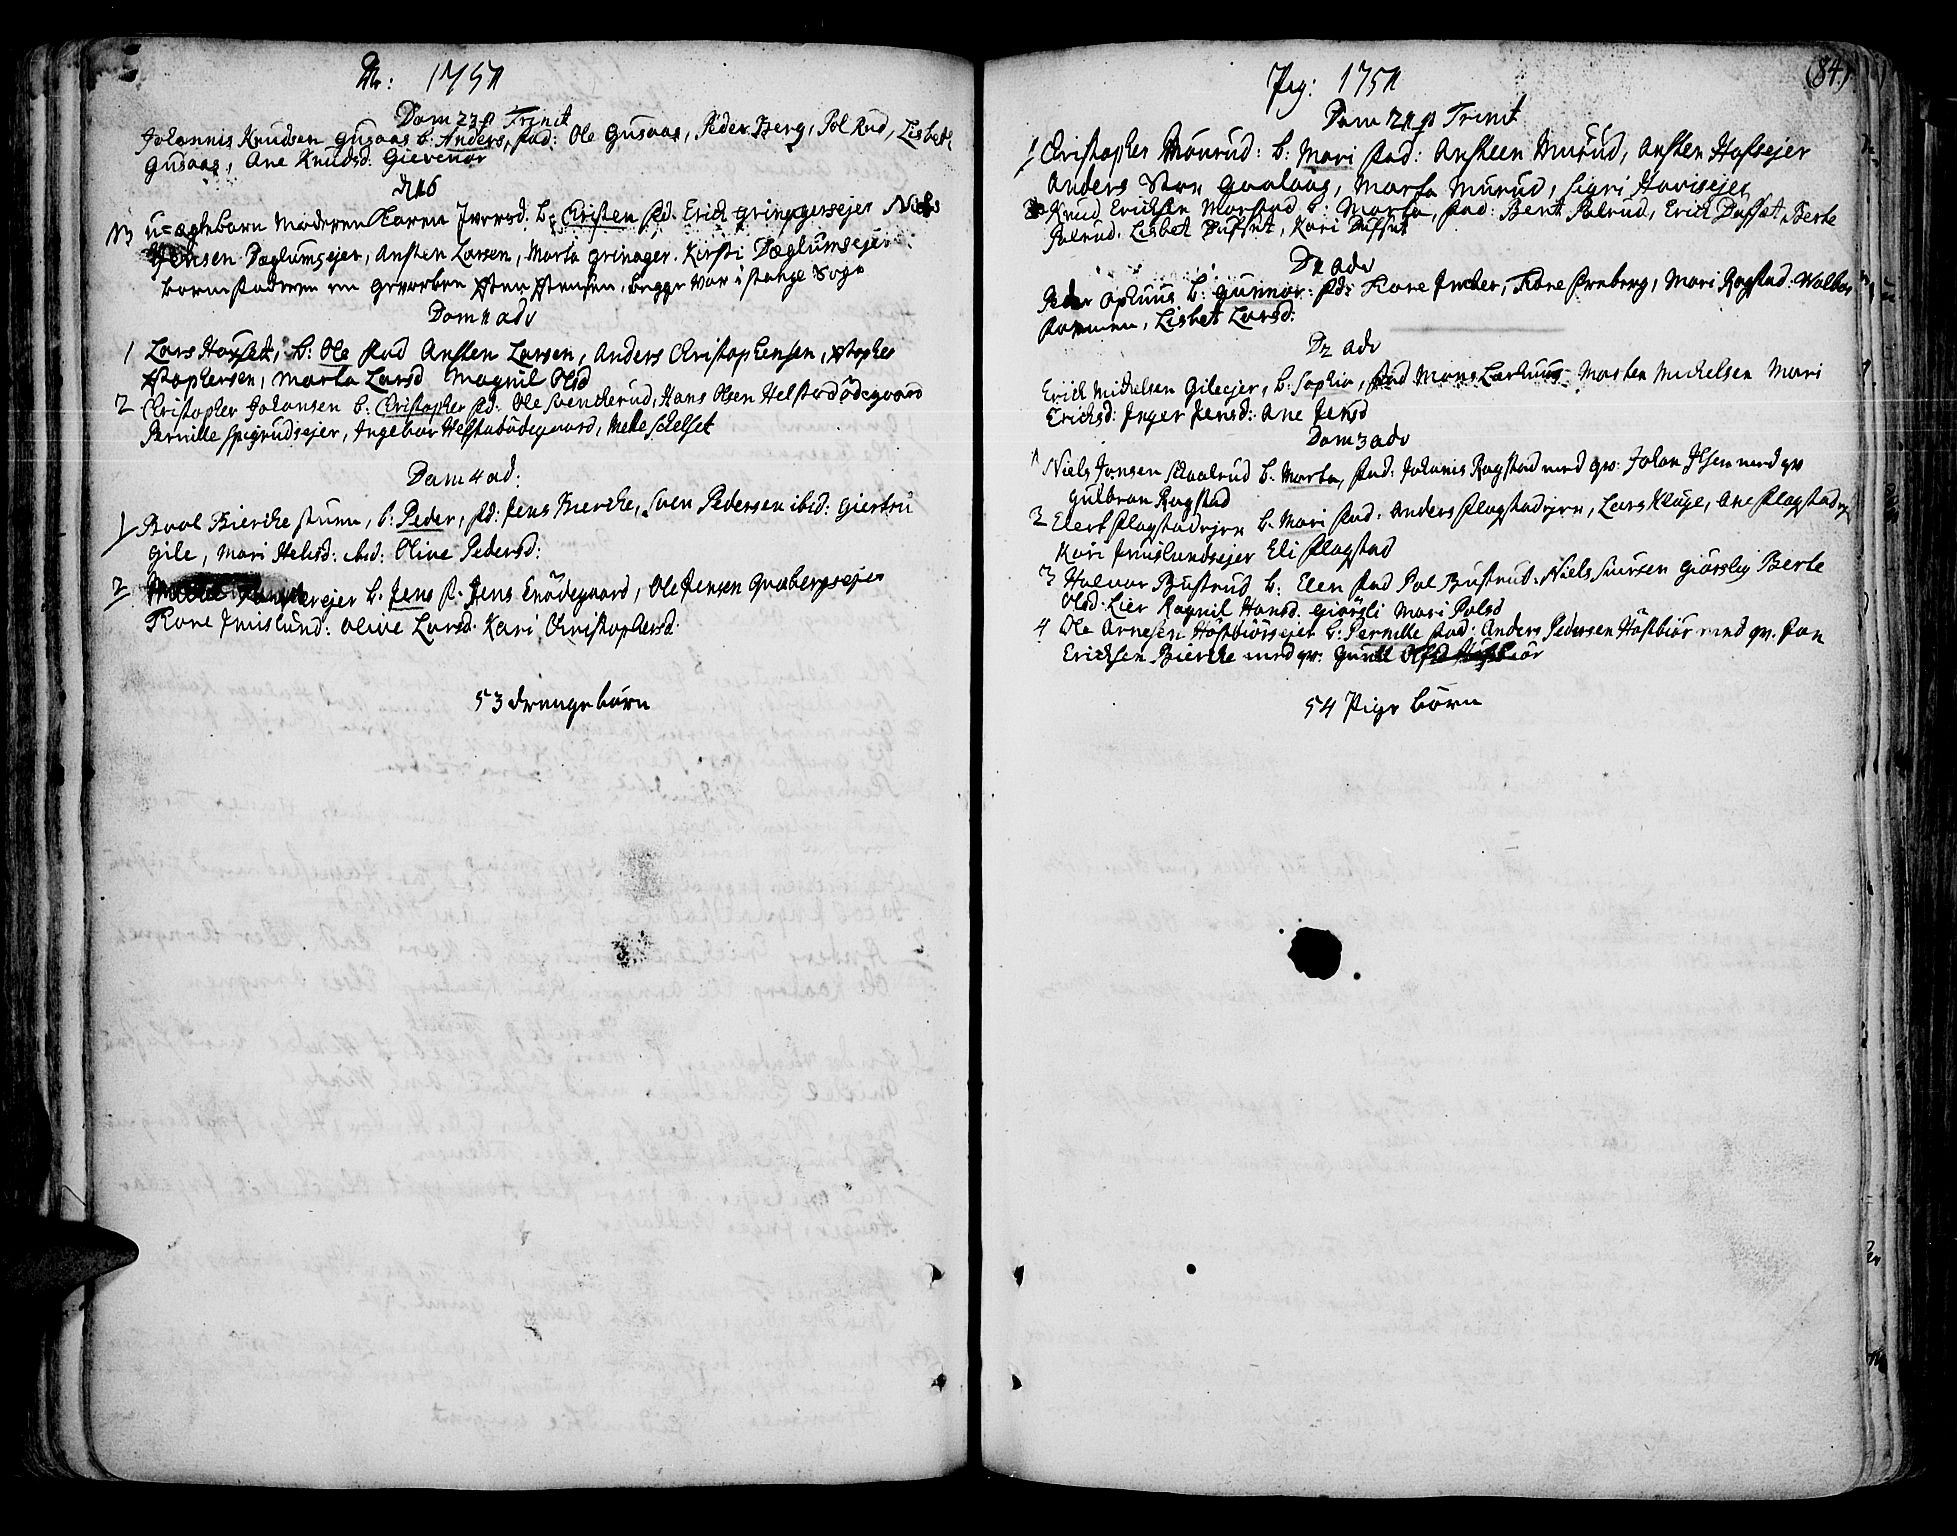 Dr: 1751
Dom 23 p Trinit
Johannis Knudsen Gusaas b: Anders, fad: Ole Gusaas, Peder Berg, Pol Rud, Lisbet
Gusaas, Ane Knudsd: Gievenor
d 16
u-ægteborn moderen Karen Iversd: b: Christen fd. Erich gringgersejer Niels
Jensen Dæglumsejer, Ansten Larsen, Marta grinager. Kirsti Dæglumsejer
begge var i stange Sogn
Dom 1 adv
1 Lars Horset, b: Ole fad Ansten Larsen, Anders Christophersen, Xstopher
Xstophersen, Marta Larsd Magnil Olsd
2 Christopher Johansen b: Christopher fd: Ole Svencherud, Hans Olsen Helstadödegaard
Pernille Spigrudsejer, Ingebor Helstadödegaard, Mette Schelset
Dom 4 ad:
1 Bierche b: Peder, fd: Jens Bierche, Sven Pedersen ibid: Giertru
Gile, Mari ibid: Olive Pedersd:
2 b. Jens f. Jens Enödegaard, Ole Jensen Graabergsejer
Kare Imislund: Olive Larsd. Kari Christophersd.
53 drengebörn
(84)
Pig: 1751
Dom 21 p Trinit
1 Christopher Mourud: b: Mari fad: Ansteen Murud, Ansten Hofsejer
Anders Stor Gaalaas, Marta Murud, Sigri Hovisejer
2 Knud Erichsen Morstad b: Marta, fad: Bent Palrud, Erich Dufset, Berte
Palrud. Lisbet Dufset, Kari Dufset
D 1 adv
Peder Ophuus b: Gunnor: fd: Kare Kare Mari Rogstad. Walbor
Lisbet Larsd:
D 2 adv
Erich Michelsen Gilesejer, b: Sophia, fad Mons Morten Michelsen Mari
Erichsd: Inger Jensd: Ane Jensd
Dom 3 adv
1 Niels Jonsen b. Marta, fad: Johanis Rogstad med qv: Johan med qv
Gulbran Rogstad
2 b. Mari fad. Anders Lars Kluge, Ane
Kari Imislundsejer Eli Flagstad
3 Halvor Bustrud b: Elen fad Pol Bustrud. Niels Giörslig Berte
Olsd. Lier Ragnil Hansd. Giörsli Mari Polsd
4 Ole Arnesen Höstbiörsejer b: Pernille fad: Anders Pedersen Höstbiör med qv. Jan
Erichsen Bierche med qv:
54 Pige börn